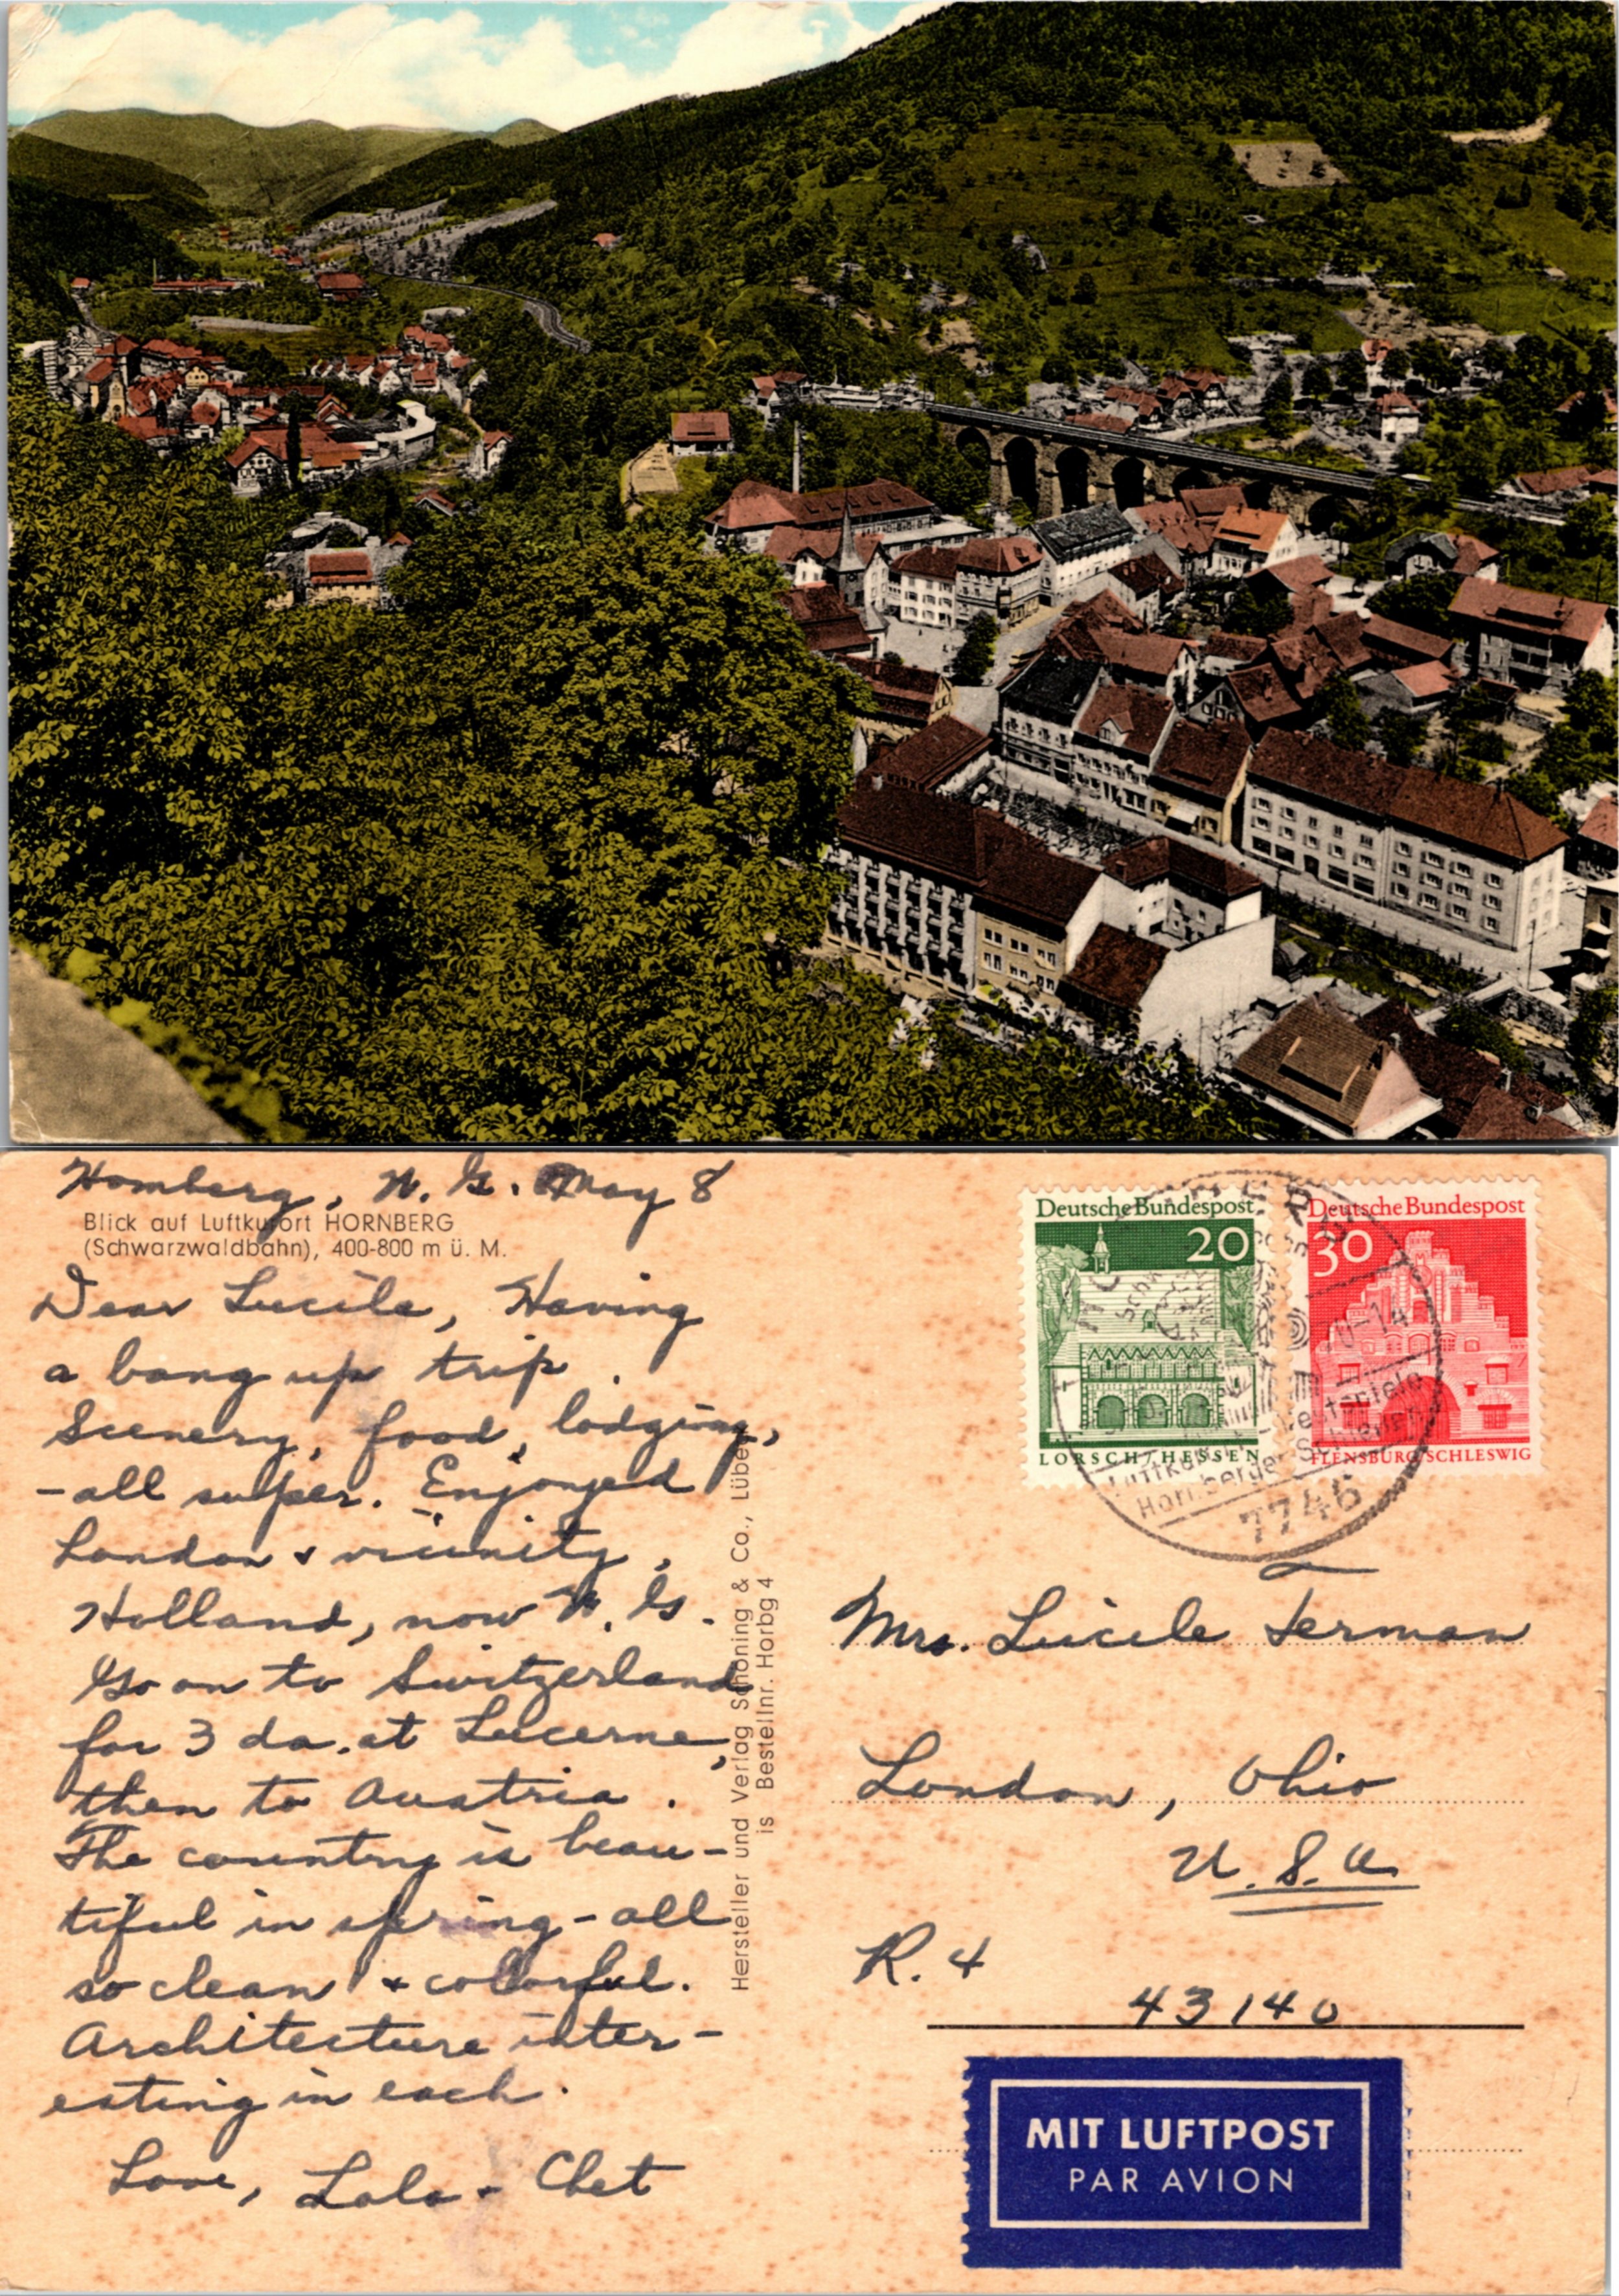 Homberg, W. G. May 8
Blick auf Luftkurort HORNBERG
(Schwarzwaldbahn), 400-800 m ü. M.
Dear Lucile, Having
a bang up trip.
Scenery, food, lodging,
-all super. Enjoyed
London + vicinity,
Holland, now W. G.
Go on to Switzerland
for 3 da. at Lucerne,
then to Austria.
The country is beau-
tiful in spring - all
so clean + colorful.
Architecture inter-
esting in each.
Love, Lola + Chet
Hersteller und Verlag Schöning & Co., Lübeck
is Bestellnr. Horbg 4
Deutsche Bundespost
20
LORSCH/HESSEN
Deutsche Bundespost
30
FLENSBURG/SCHLESWIG
-14
Luftkurort
Hornberger Schießen
7746
Mrs. Lucile Terman
London, Ohio
U. S. A
R. 4
43140
MIT LUFTPOST
PAR AVION